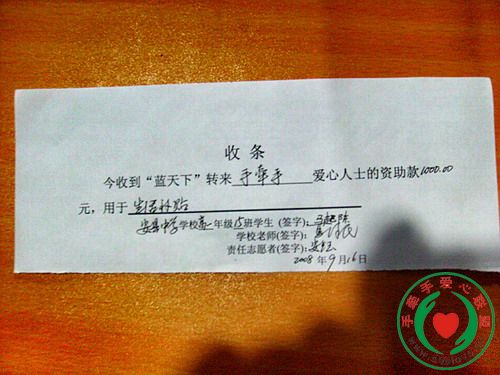 收条
今收到“蓝天下”转来 手牵手 爱心人士的资助款1000.00
元，用于 生活补贴
学校高一年级15班学生（签字）：
学校老师（签字）：
责任志愿者（签字）：
2008年9月16日
手牵手爱心联盟